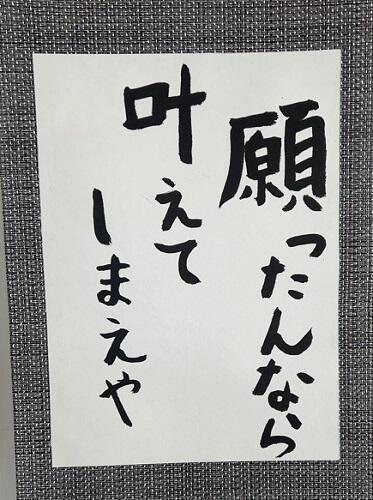 願ったんなら
叶えて
しまえや